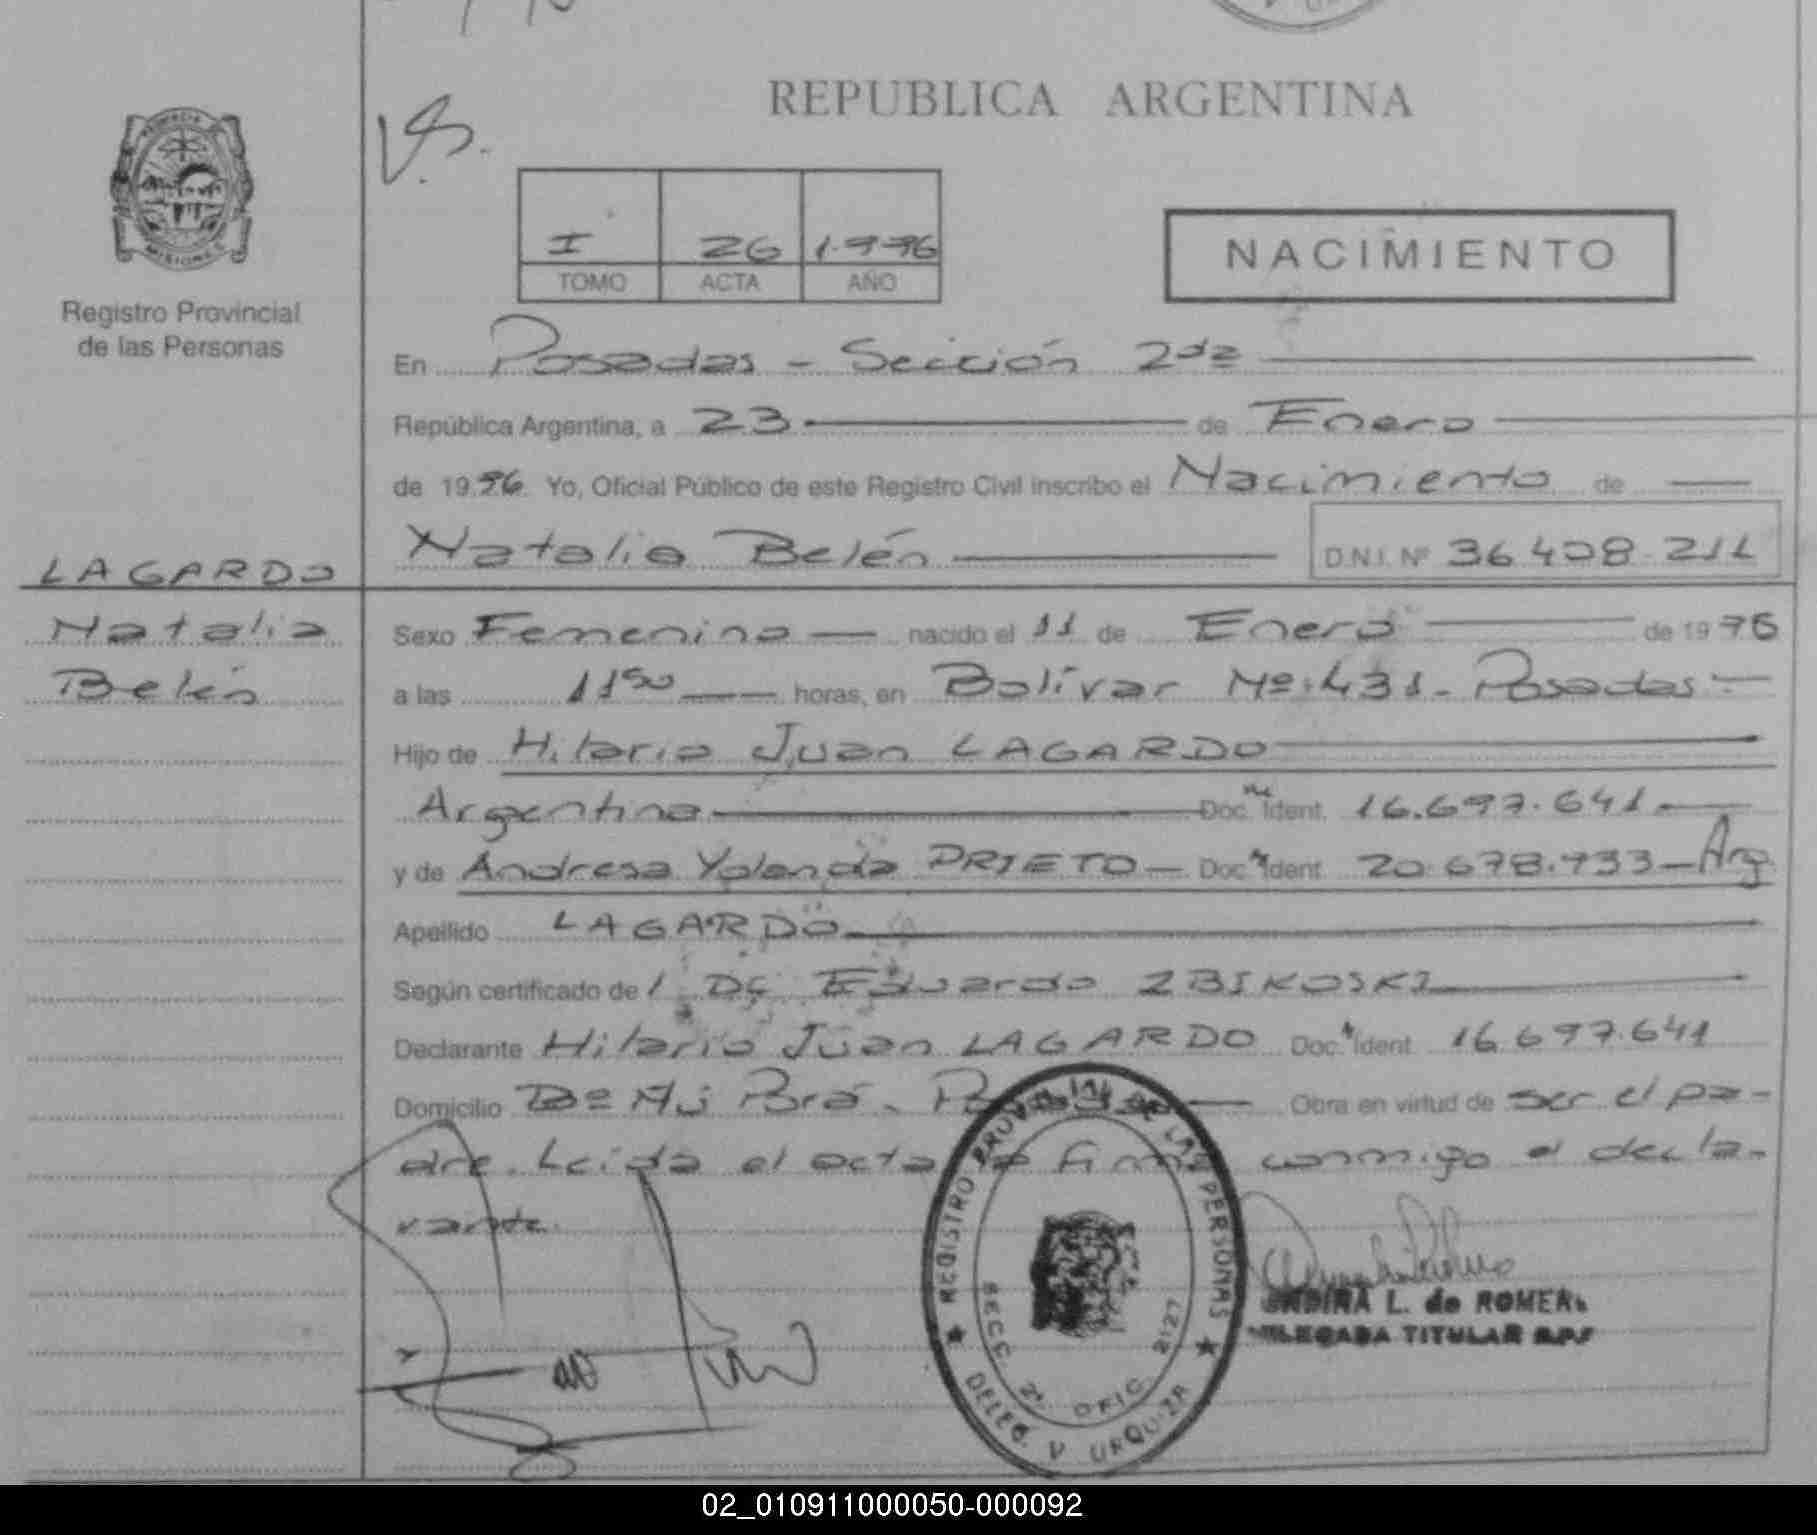 REPUBLICA ARGENTINA
PROVINCIA DE
MISIONES
Registro Provincial
de las Personas
I 26 1.996
TOMO ACTA AÑO
NACIMIENTO
En Posadas - Sección 2da
República Argentina, a 23 de Enero
de 1996. Yo, Oficial Público de este Registro Civil inscribo el Nacimiento de
Natalia Belén D.N.I. Nº 36.408.211
LAGARDO
Natalia
Belén
Sexo Femenino nacido el 11 de Enero de 1996
a las 11 50 horas, en Bolívar Nº 431 - Posadas -
Hijo de Hilario Juan LAGARDO
Argentino Doc. Ident. 16.697.641
y de Andresa Yolanda PRIETO - Doc. Ident. 20.678.933 - Arg.
Apellido LAGARDO
Según certificado de Dr. Eduardo ZBIKOSKI
Declarante Hilario Juan LAGARDO Doc. Ident. 16.697.641
Domicilio Bº Ñú Porá. Obra en virtud de ser el pa-
dre. Leída el acta la firma conmigo el decla-
rante.
REGISTRO PROVINCIAL DE LAS PERSONAS
SECC. 2ª OFIC. 2127
DELEG. V. URQUIZA
L. de ROMERO
DELEGADA TITULAR R.P.P.
02_010911000050-000092